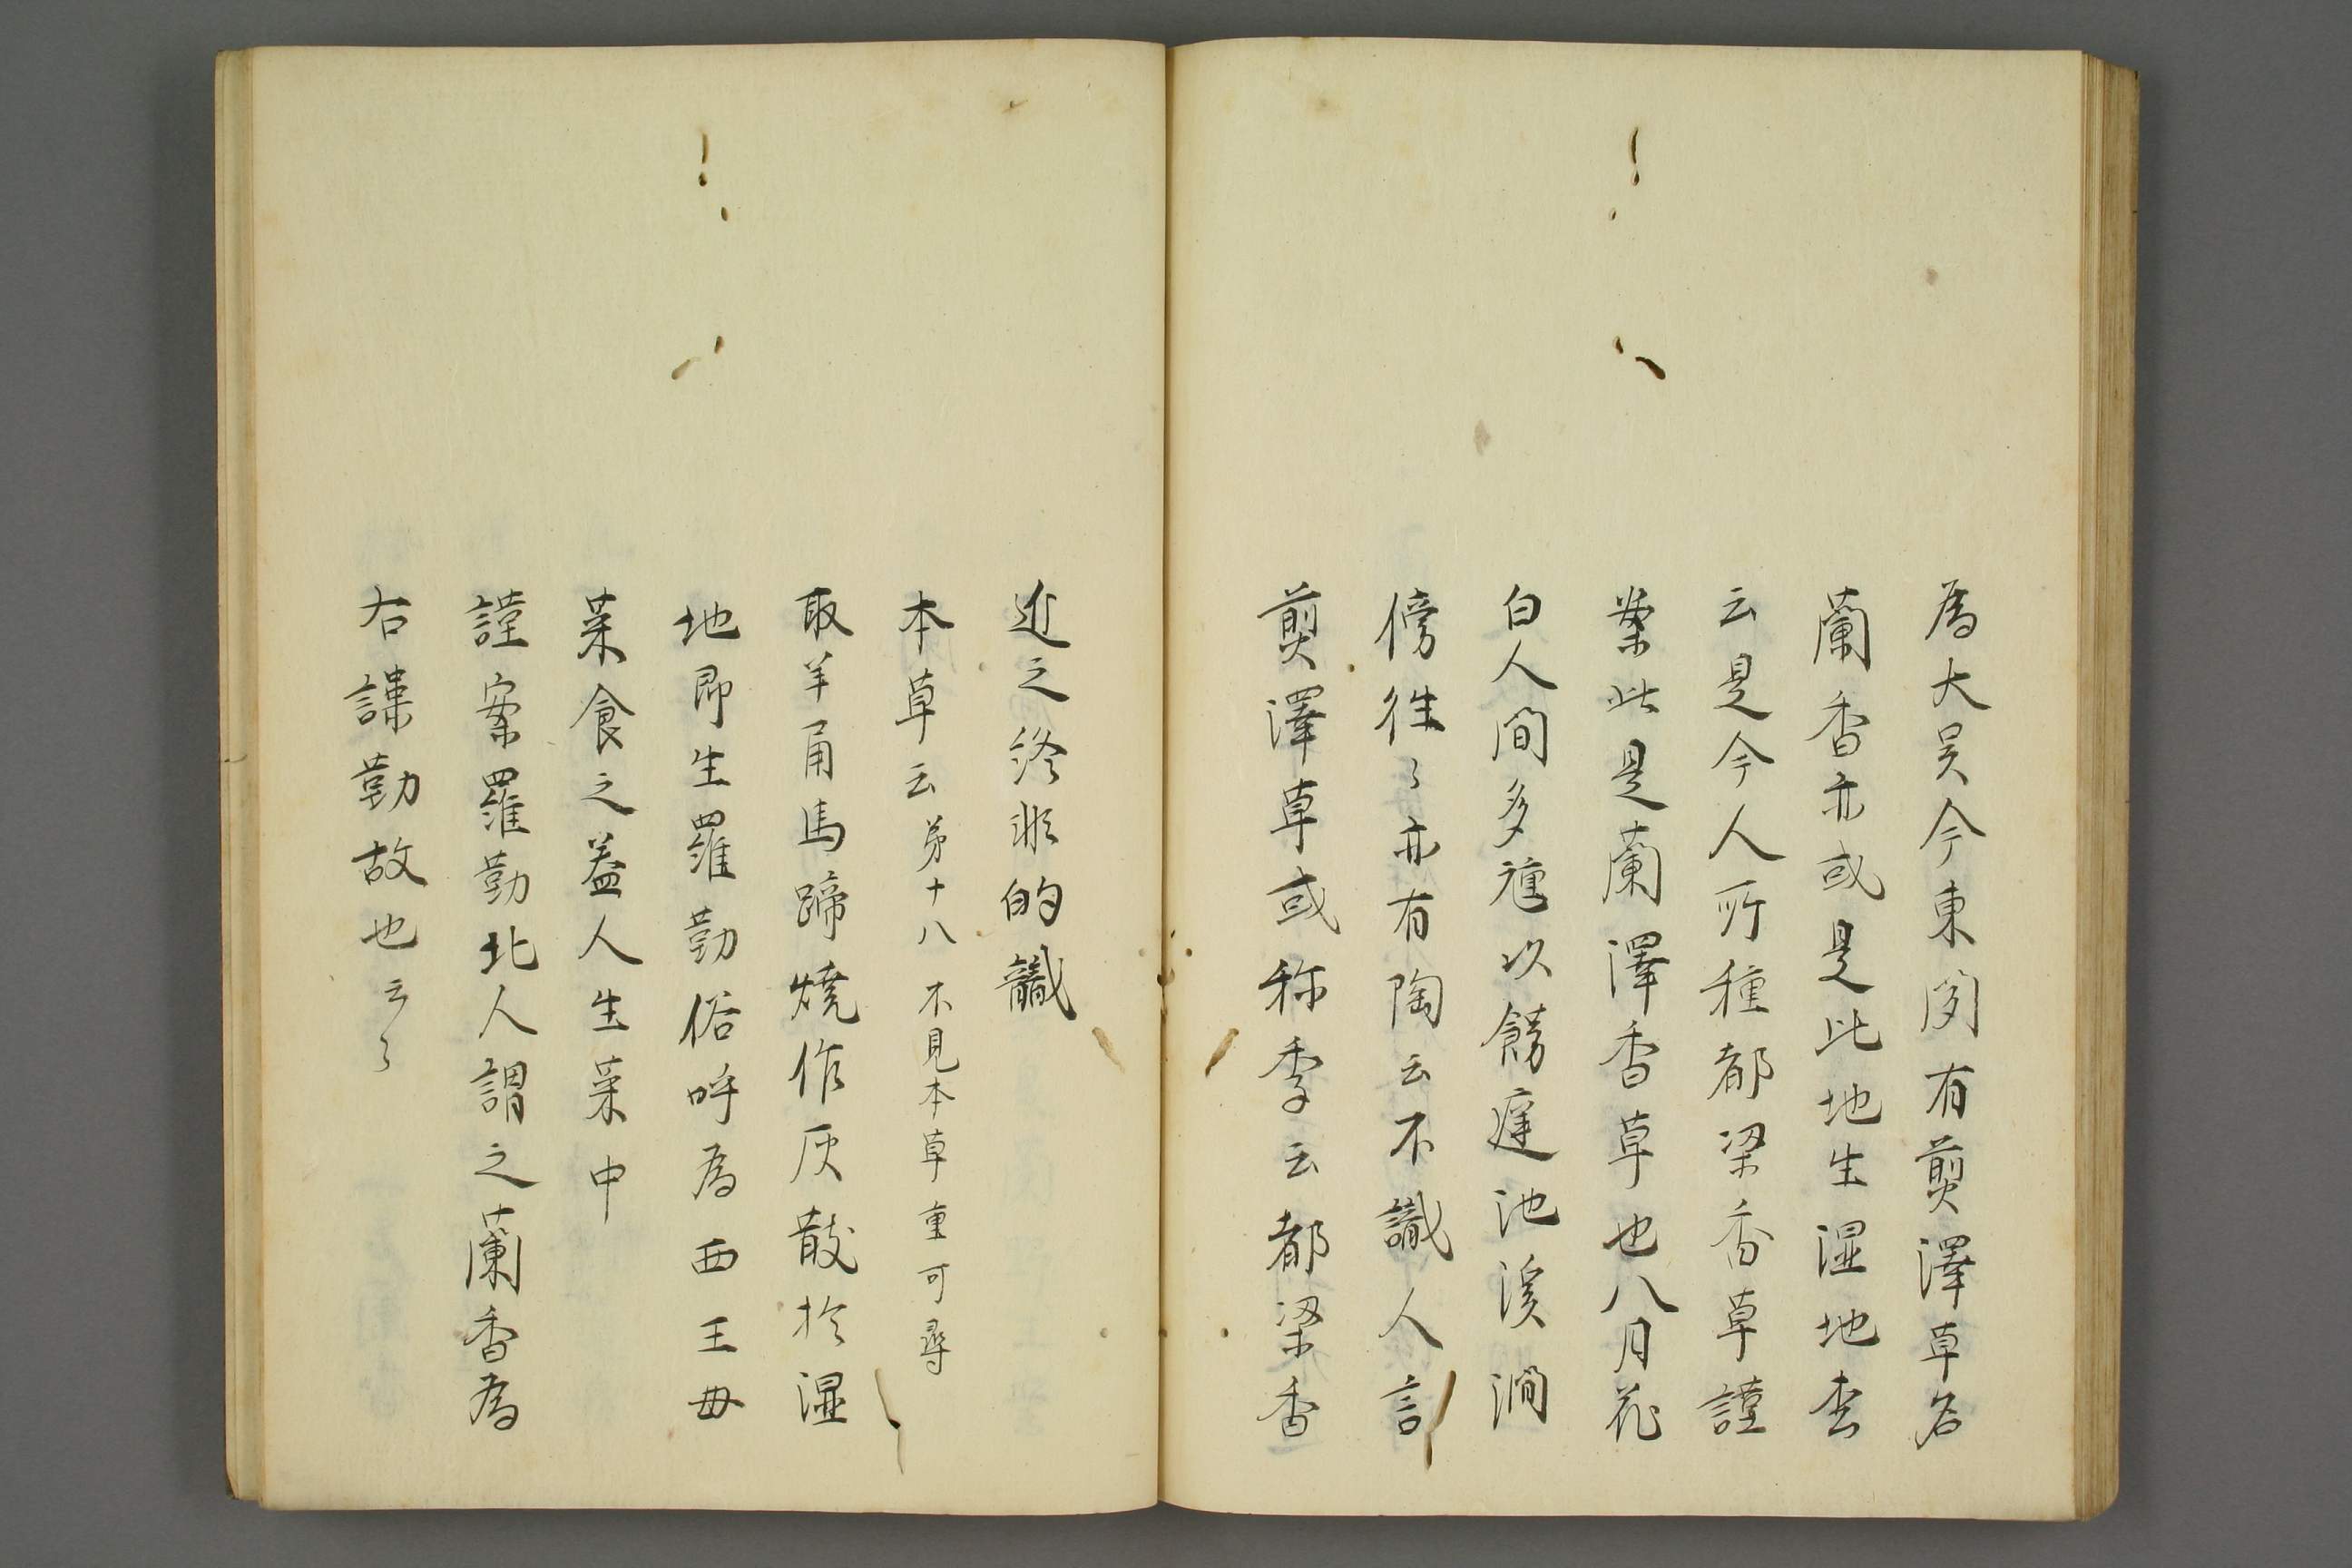 為大吴今東間有煎澤草名
蘭香亦或是此地生濕地李
云是今人所種都梁香草謹
案此是蘭澤香草也八月花
白人間多種以餝庭池溪澗
傍往〻亦有陶云不識人言
煎澤草或称李云都梁香
近之終非的識
本草云第十八 不見本草重可尋
取羊角馬蹄燒作灰散於濕
地即生羅勒俗呼為西王母
菜食之益人生菜中
謹案羅勒北人謂之蘭香為
右諱勒故也云〻